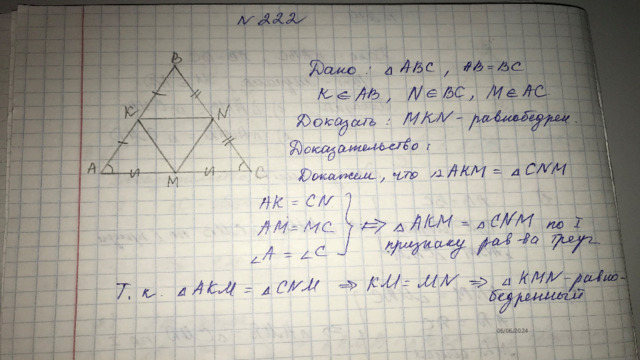 N 222
Дано: △ABC, AB=BC
K∈AB, N∈BC, M∈AC
Доказать: MKN - равнобедрен.
Доказательство:
Докажем, что △AKM = △CNM
AK = CN
AM = MC
∠A = ∠C
} ⇒ △AKM = △CNM по I
признаку рав-ва треуг.
Т. к. △AKM = △CNM ⇒ KM = MN ⇒ △KMN - равно-
бедренный
B
K
N
A
M
C
05/06/2024